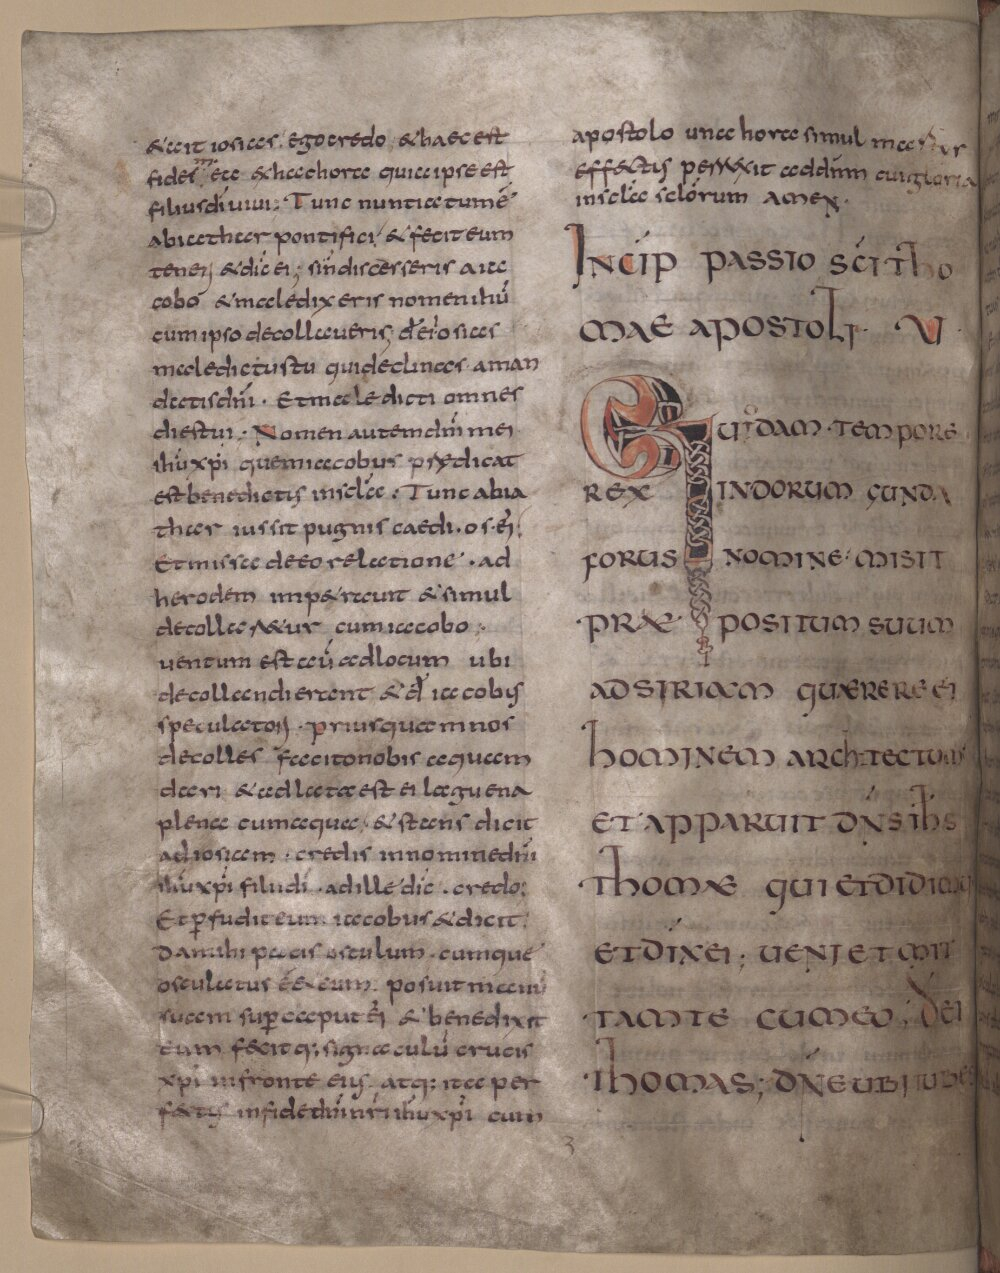 & ait iosias. ego credo & haec est
fides mea & haec hora quia ipse est
filius dī uiui. Tunc nuntiatum ē
abiathar pontifici, & fecit eum
teneri & dic ei; sin discesseris a ia
cobo & maledixeris nomen ihū
cum ipso decollaueris; dēr iosias
maledictus tu qui declinas a man
datis dn̄i. Et maledicti omnes
dies tui. Nomen autem dn̄i mei
ihū xp̄i quem iacobus praedicat
est benedictis in sc̄la. Tunc abia
thar iussit pugnis caedi os eī.
Et missa de eo relatione ad
herodem imp&rauit & simul
decolla&ur cum iacobo.
uentum est aū ad locum ubi
decollandi erant & dīc iacobus
speculatori priusquam nos
decolles facito nobis aquam
dari & adlata est ei laguena
plena cum aqua. & stans dicit
ad iosiam. credis in nomine dn̄i
ihū xp̄i filii dī. ad ille dic. credo;
Et ꝑfudit eum iacobus & dicit
Da mihi pacis osculum. cumque
osculatus ēēt eum. posuit manū
suam suꝑ caput eī & benedixit
eum fecitq; signaculū crucis
xp̄i in fronte eius. atq; ita per
fectus in fide dn̄i nr̄i ihū xp̄i cum
apostolo una hora simul martyr
effectus perrexit ad dnm cui gloria
in scla sclorum amen.
Incip passio sc̄i tho
mae apostoli. V
Quodam tempore
rex indorum gunda
forus nomine misit
praepositum suum
ad siriam quaerere ei
hominem architectum
et apparuit dn̄s ihs
thomae qui et didimus
et dixei; ueni et mit
tam te cum eo. dei
thomas; dn̄e ubi iubes
3